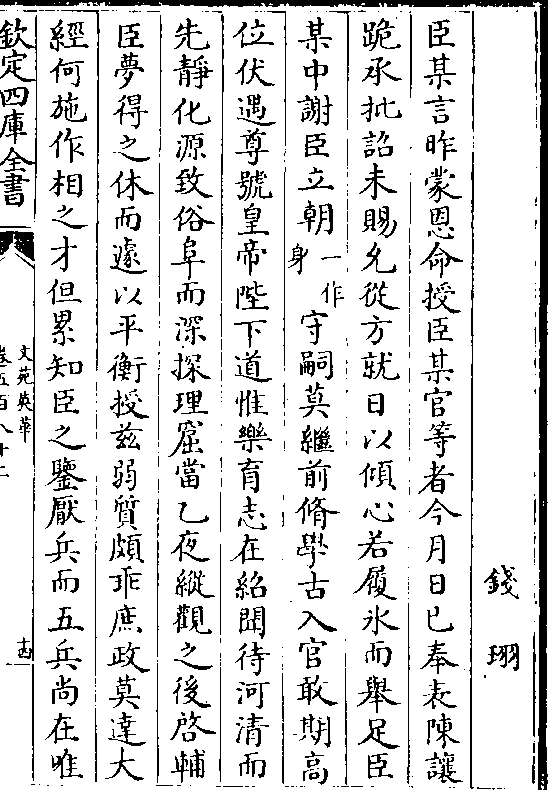 錢珝
臣某言昨蒙恩命授臣某官等者今月日已奉表陳讓
跪承批詔未賜允從方就日以傾心若履氷而舉足臣
某中謝臣立朝一作身守嗣莫繼前脩學古入官敢期高
位伏遇尊號皇帝陛下道惟樂育志在紹聞待河清而
先靜化源致俗阜而深探理窟當乙夜縱觀之後啓輔
臣夢得之休而遽以平衡授兹弱質頗乖庶政莫達大
經何施作相之才但累知臣之鑒厭兵而五兵尚在唯
欽定四庫全書
文苑英華
卷五百八十二
十四